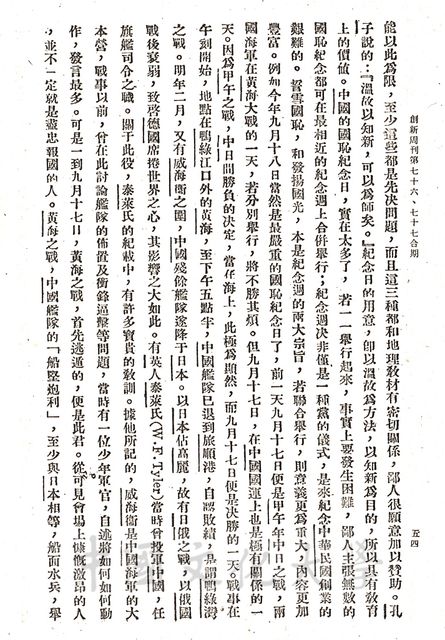 創新周刊第七十六、七十七合期
五四
能以此為限，至少這些都是先决問題，而且這三種都和地理教材有密切關係，鄙人很願意加以贊助。孔
子說的：『溫故以知新，可以為師矣。』紀念日的用意，卽以溫故為方法，以知新為目的，所以具有教育
上的價值。中國的國恥紀念日，實在太多了，若一一舉行起來，事實上要發生困難，鄙人主張無數的
國恥紀念都可在最相近的紀念週上合併舉行；紀念週決非僅是一種黨的儀式，是來紀念中華民國創業的
艱難的。誓雪國恥，和發揚國光，本是紀念週的兩大宗旨，若聯合舉行，則意義更為重大，內容更加
豐富。例如今年九月十八日當然是最嚴重的國恥紀念日了，前一天九月十七日便是甲午年中日之戰，兩
國海軍在黃海大戰的一天，若分別舉行，將不勝其煩。但九月十七日，在中國國運上也是極有關係的一
天。因為甲午之戰，中日間勝負的決定，當在海上，此極為顯然，而九月十七日便是決勝的一天。戰事在
午刻開始，地點在鴨綠江口外的黃海，至下午五點半，中國艦隊已退到旅順港，自認敗績，是謂鴨綠灣
之戰。明年二月，又有威海衛之圍，中國殘餘艦隊遂降于日本。以日本佔高麗，故有日俄之戰，以俄國
戰後衰弱，致啓德國席捲世界之心，其影響之大如此。有英人泰萊氏(W.F.Tyler)當時曾投軍中國，任
旗艦司令之職。關于此役，泰萊氏的紀載中，有許多寶貴的教訓。據他所記的，威海衛是中國海軍的大
本營，戰事以前，曾在此討論艦隊的佈置及衝鋒逼擊等問題，當時有一位少年軍官，自述將如何如何動
作，發言最多。可是一到九月十七日，黃海之戰，首先逃遁的，便是此君。從可見會場上慷慨激昂的人
，並不一定就是盡忠報國的人。黃海之戰，中國艦隊的「船堅炮利」，至少與日本相等，船面水兵，舉